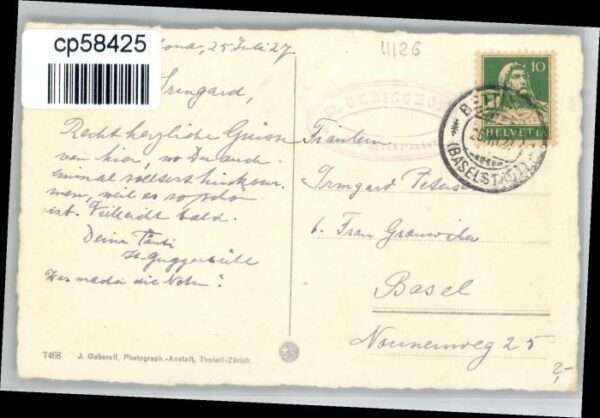 cp58425
25 Juli 27
11126
Irmgard,
Recht herzliche Grüsse
von hier, wo Du auch
einmal solltest hinkom-
men, weil es so schön
ist. Vielleicht bald.
Deine Tante
H. Guggenbühl
Was machen die Noten?
Fräulein
Irmgard Peters
b. Frau
Basel
Nonnenweg 25
10
HELVETIA
(BASELSTADT)
7468 J. Gaberell, Photograph.-Anstalt, Thalwil-Zürich
2,-